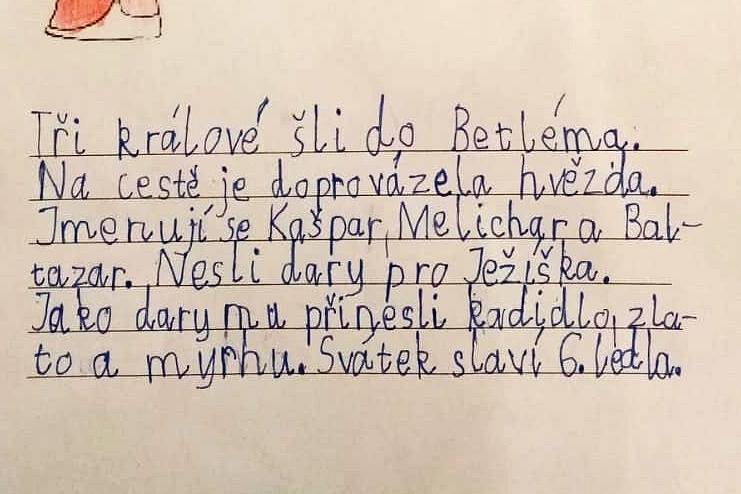 Tři králové šli do Betléma.
Na cestě je doprovázela hvězda.
Jmenují se Kašpar, Melichar a Bal-
tazar. Nesli dary pro Ježiška.
Jako dary mu přinesli kadidlo, zla-
to a myrhu. Svátek slaví 6. ledla.